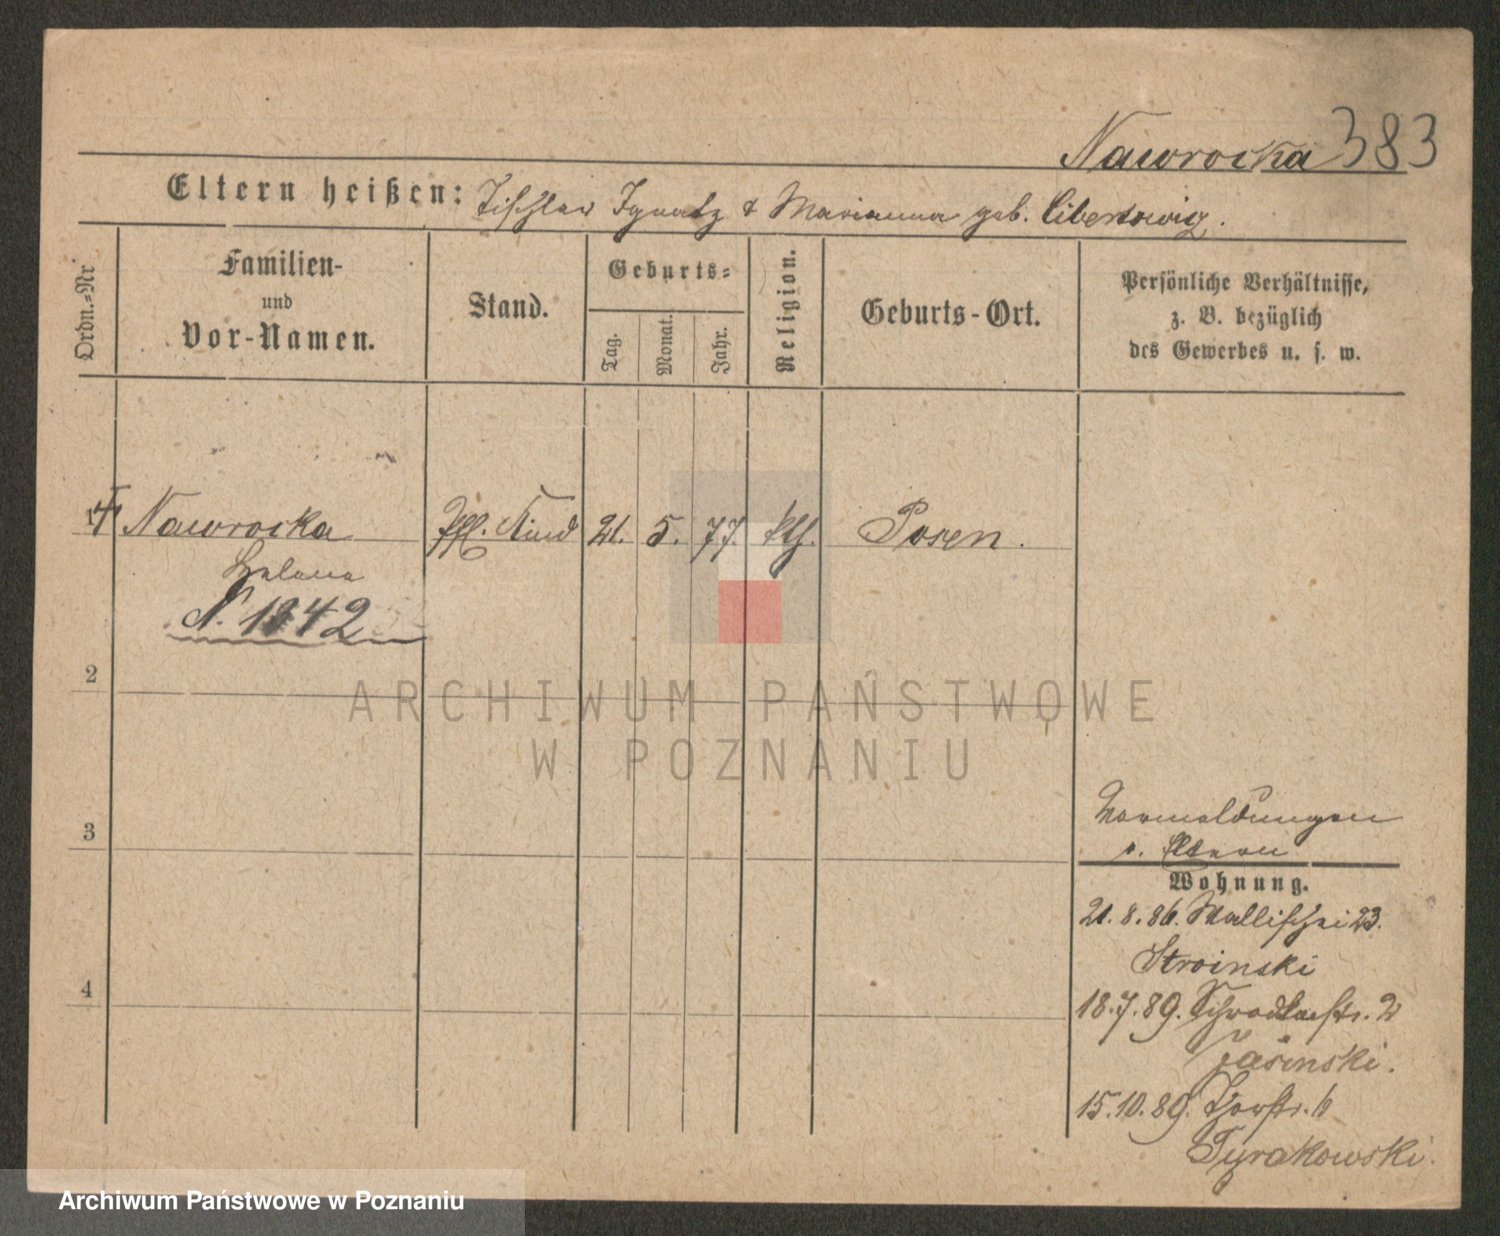 Nawrocka 383
Eltern heißen: Tischler Ignatz & Marianna geb. Cibertowicz.
Ordn.=Nr
Familien-
und
Vor-Namen.
Stand.
Geburts=
Tag.
Monat.
Jahr.
Religion.
Geburts-Ort.
Persönliche Verhältnisse,
z. B. bezüglich
des Gewerbes u. s. w.
1 Nawrocka Pfl. Kind 21. 5. 77. kth. Posen.
Helena
N. 1942
2
ARCHIWUM PAŃSTWOWE
W POZNANIU
3
Vormeldungen
s. Eltern
Wohnung.
21. 8. 86. Wallischei 23.
Stroinski
4
18. 7. 89. Schrodkaestr. 2
Jasinski.
15. 10. 89. Thorstr. 6
Tyrakowski.
Archiwum Państwowe w Poznaniu